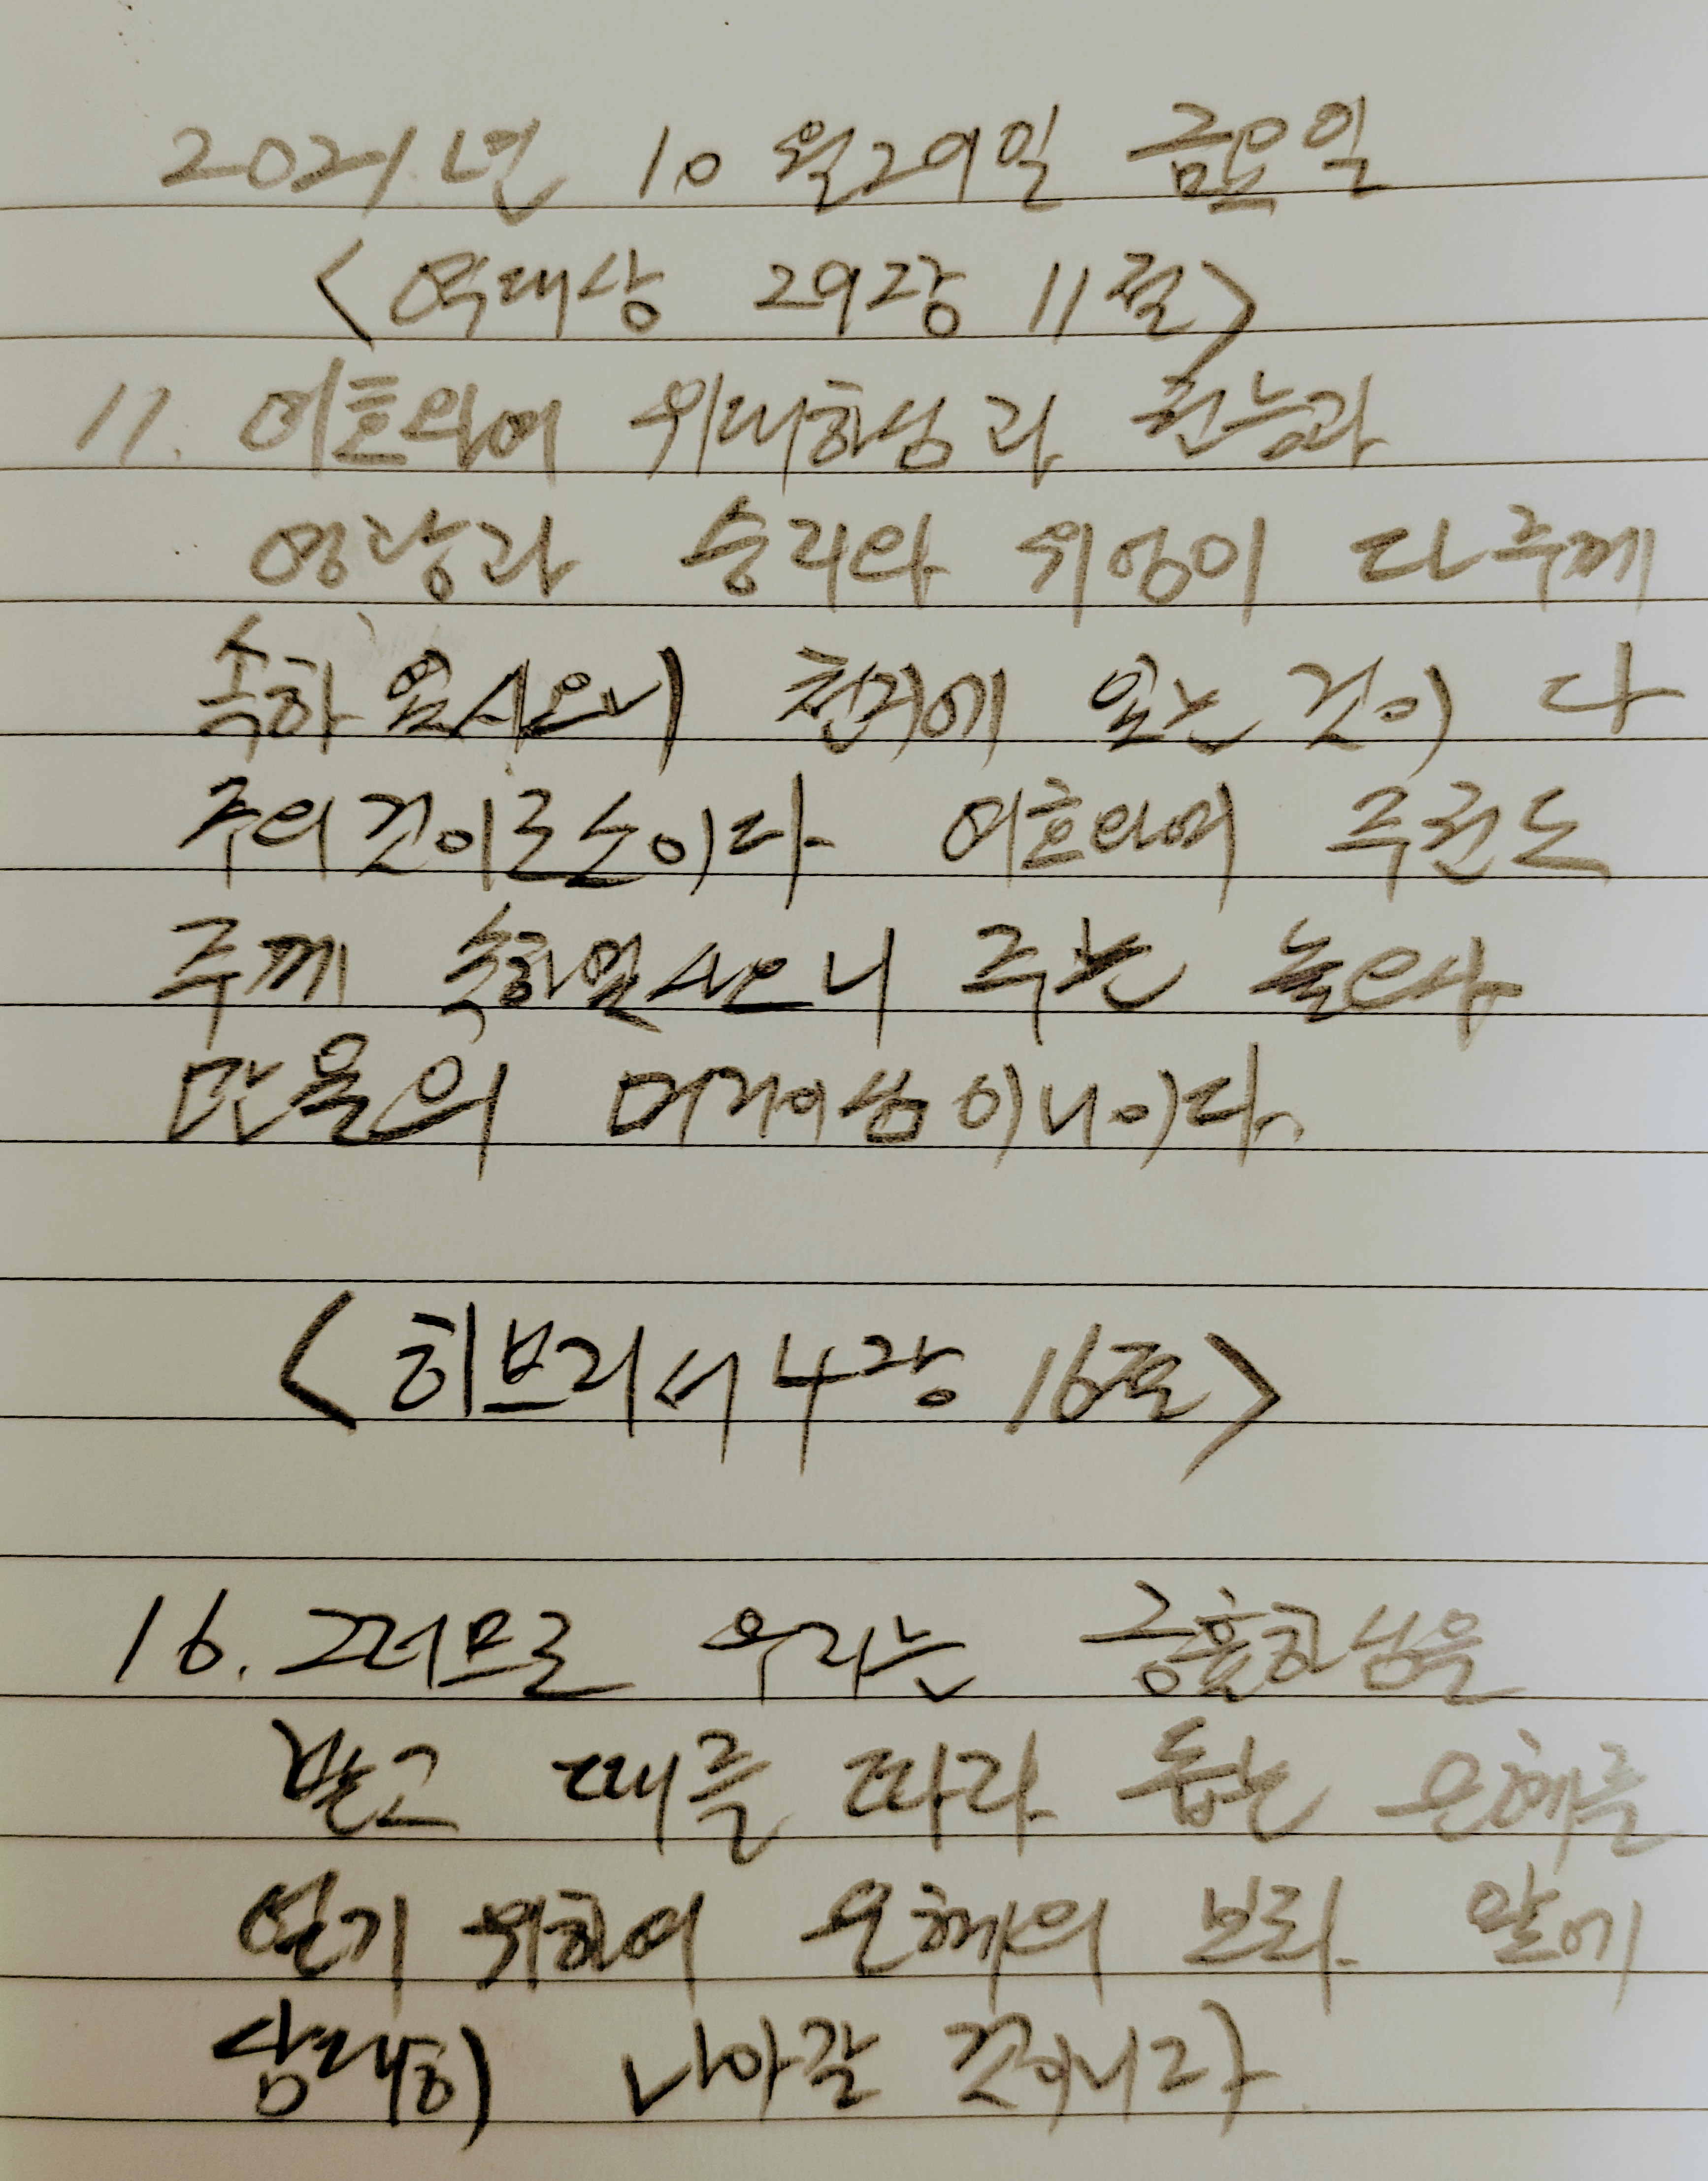 2021년 10월29일 금요일
<역대상 29장 11절>
11. 여호와여 위대하심과 권능과
영광과 승리와 위엄이 다 주께
속하였사오니 천지에 있는 것이 다
주의 것이로소이다 여호와여 주권도
주께 속하였사오니 주는 높으사
만물의 머리이심이니이다.
<히브리서 4장 16절>
16. 그러므로 우리는 긍휼하심을
받고 때를 따라 돕는 은혜를
얻기 위하여 은혜의 보좌 앞에
담대히 나아갈 것이니라.